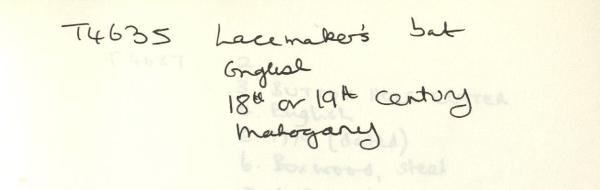 T4635 Lacemaker's bat
English
18th or 19th century
Mahogany